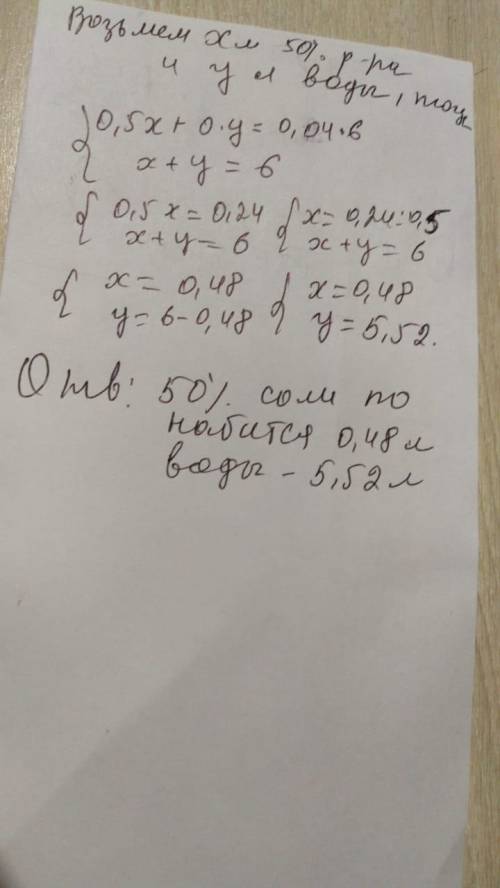 Возьмем х л 50% р-ра
и у л воды, тогда
{ 0,5x + 0·y = 0,04·6
x + y = 6
{ 0,5x = 0,24 { x = 0,24:0,5
x + y = 6 x + y = 6
{ x = 0,48 { x = 0,48
y = 6 - 0,48 y = 5,52.
Отв: 50% соли по
надобится 0,48 л
воды - 5,52 л